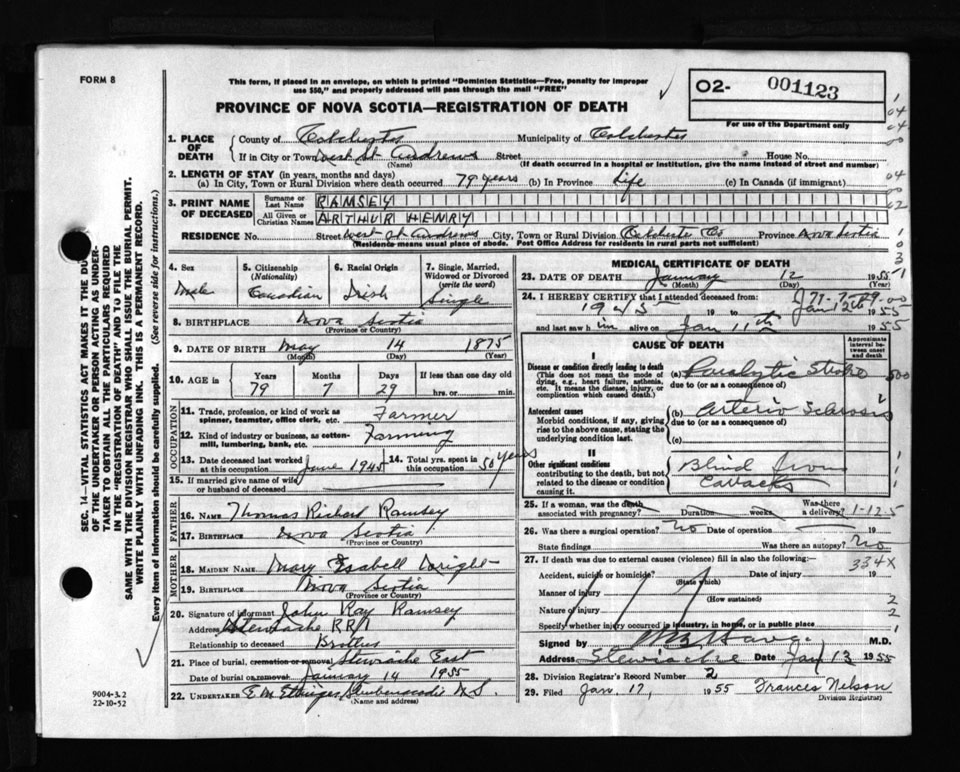 FORM 8
This form, if placed in an envelope, on which is printed "Dominion Statistics—Free, penalty for improper
use $50," and properly addressed will pass through the mail "FREE"
02- 001123
For use of the Department only
PROVINCE OF NOVA SCOTIA—REGISTRATION OF DEATH
SEC. 14.—VITAL STATISTICS ACT MAKES IT THE DUTY
OF THE UNDERTAKER OR PERSON ACTING AS UNDER-
TAKER TO OBTAIN ALL THE PARTICULARS REQUIRED
IN THE "REGISTRATION OF DEATH" AND TO FILE THE
SAME WITH THE DIVISION REGISTRAR WHO SHALL ISSUE THE BURIAL PERMIT.
WRITE PLAINLY WITH UNFADING INK. THIS IS A PERMANENT RECORD.
Every item of information should be carefully supplied. (See reverse side for instructions.)
1. PLACE OF DEATH County of Colchester Municipality of Colchester
If in City or Town West St Andrews Street House No.
(Name) (If death occurred in a hospital or institution, give the name instead of street and number)
2. LENGTH OF STAY (in years, months and days)
(a) In City, Town or Rural Division where death occurred 79 years (b) In Province Life (c) In Canada (if immigrant)
3. PRINT NAME OF DECEASED Surname or Last Name RAMSEY
All Given or Christian Names ARTHUR HENRY
RESIDENCE No. Street West St Andrews City, Town or Rural Division Colchester Co Province Nova Scotia
(Residence means usual place of abode. Post Office Address for residents in rural parts not sufficient)
4. Sex Male
5. Citizenship (Nationality) Canadian
6. Racial Origin Irish
7. Single, Married, Widowed or Divorced (write the word) Single
8. BIRTHPLACE Nova Scotia
(Province or Country)
9. DATE OF BIRTH May 14 1875
(Month) (Day) (Year)
10. AGE in Years 79 Months 7 Days 29 If less than one day old
hrs. or min.
OCCUPATION
11. Trade, profession, or kind of work as spinner, teamster, office clerk, etc. Farmer
12. Kind of industry or business, as cotton-mill, lumbering, bank, etc. Farming
13. Date deceased last worked at this occupation June 1945 14. Total yrs. spent in this occupation 50 years
15. If married give name of wife or husband of deceased
FATHER
16. NAME Thomas Richard Ramsey
17. BIRTHPLACE Nova Scotia
(Province or Country)
MOTHER
18. MAIDEN NAME Mary Isabell Wright
19. BIRTHPLACE Nova Scotia
(Province or Country)
20. Signature of informant John Ray Ramsey
Address Stewiacke RR1
Relationship to deceased Brother
21. Place of burial, cremation or removal Stewiacke East
Date of burial or removal January 14 1955
22. UNDERTAKER E.M. Ettinger Shubenacadie N.S.
(Name and address)
9004-3.2
22-10-52
MEDICAL CERTIFICATE OF DEATH
23. DATE OF DEATH January 12 1955
(Month) (Day) (Year)
24. I HEREBY CERTIFY that I attended deceased from:
1945 19 to Jan 12th 1955
and last saw him alive on Jan 11th 1955
CAUSE OF DEATH
Approximate interval between onset and death
I
Disease or condition directly leading to death
(This does not mean the mode of dying, e.g., heart failure, asthenia, etc. It means the disease, injury, or complication which caused death.)
(a) Paralytic Stroke
due to (or as a consequence of)
Antecedent causes
Morbid conditions, if any, giving rise to the above cause, stating the underlying condition last.
(b) Arterio Sclerosis
due to (or as a consequence of)
(c)
II
Other significant conditions
contributing to the death, but not related to the disease or condition causing it.
Blind from
Cataracts
25. If a woman, was the death associated with pregnancy? Duration weeks Was there a delivery? 1-12-5
26. Was there a surgical operation? No Date of operation 19
State findings Was there an autopsy? No
27. If death was due to external causes (violence) fill in also the following:— 334X
Accident, suicide or homicide? Date of injury 19
(State which)
Manner of injury
(How sustained)
Nature of injury
Specify whether injury occurred in industry, in home, or in public place
Signed by M.D.
Address Stewiacke Date Jan 13 1955
28. Division Registrar's Record Number 2
29. Filed Jan. 17, 1955 Frances Nelson
(Division Registrar)